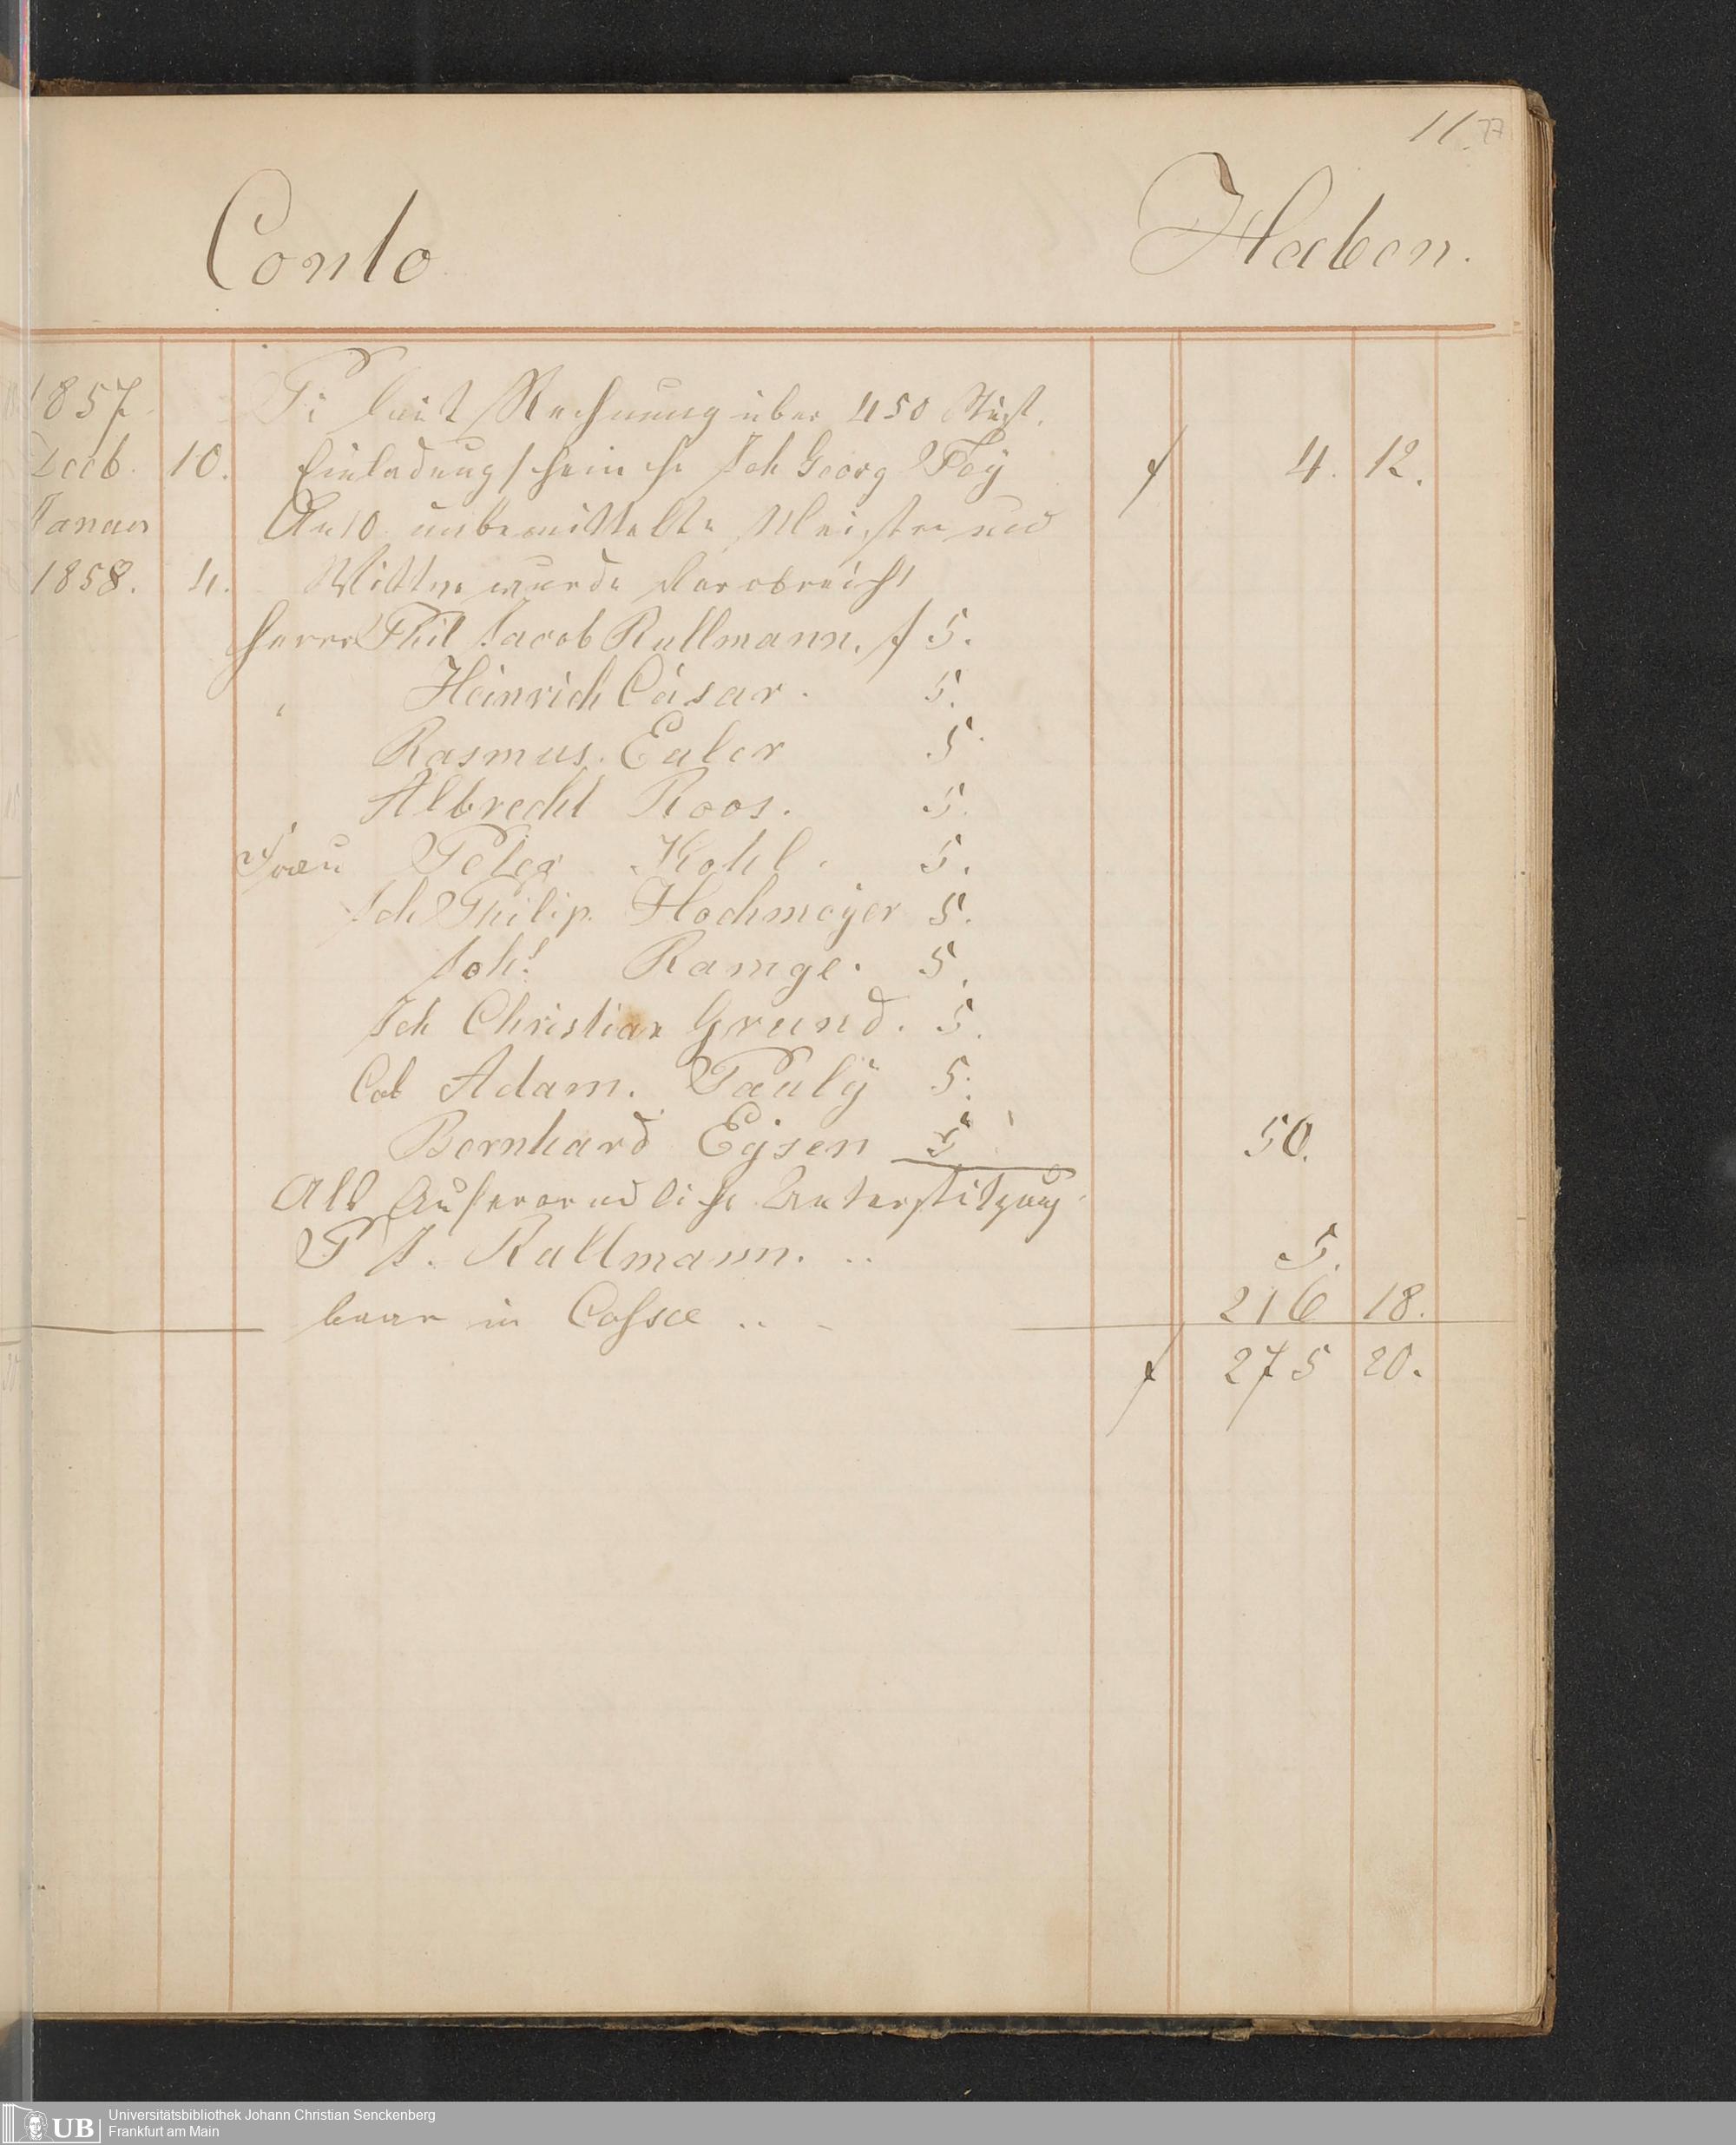 11. 77
Conto Haben.
1857 Pr laut Rechnung über 450 Stück
Decb. 10. Einladungsscheine Joh Georg Fey f 4. 12.
Januar An 10 unbemittelte Meister und
1858. 4. Wittwe wurde verabreicht
Herrn Phil Jacob Rullmann. f 5.
" Heinrich Cäsar. 5.
Rasmus. Euler 5.
Albrecht Roos. 5.
Frau Peter Kohl. 5.
Joh Philip. Hochmeÿer 5.
Johs. Ramge. 5.
Joh Christian Grund. 5.
Adam. Paulÿ 5.
Bernhard Eÿsen 5 50.
Als Auserorndliche Unterstitzung
P J. Rullmann. .. 5.
baar in Cassa .. 216 18.
f 275 20.
UB Universitätsbibliothek Johann Christian Senckenberg
Frankfurt am Main